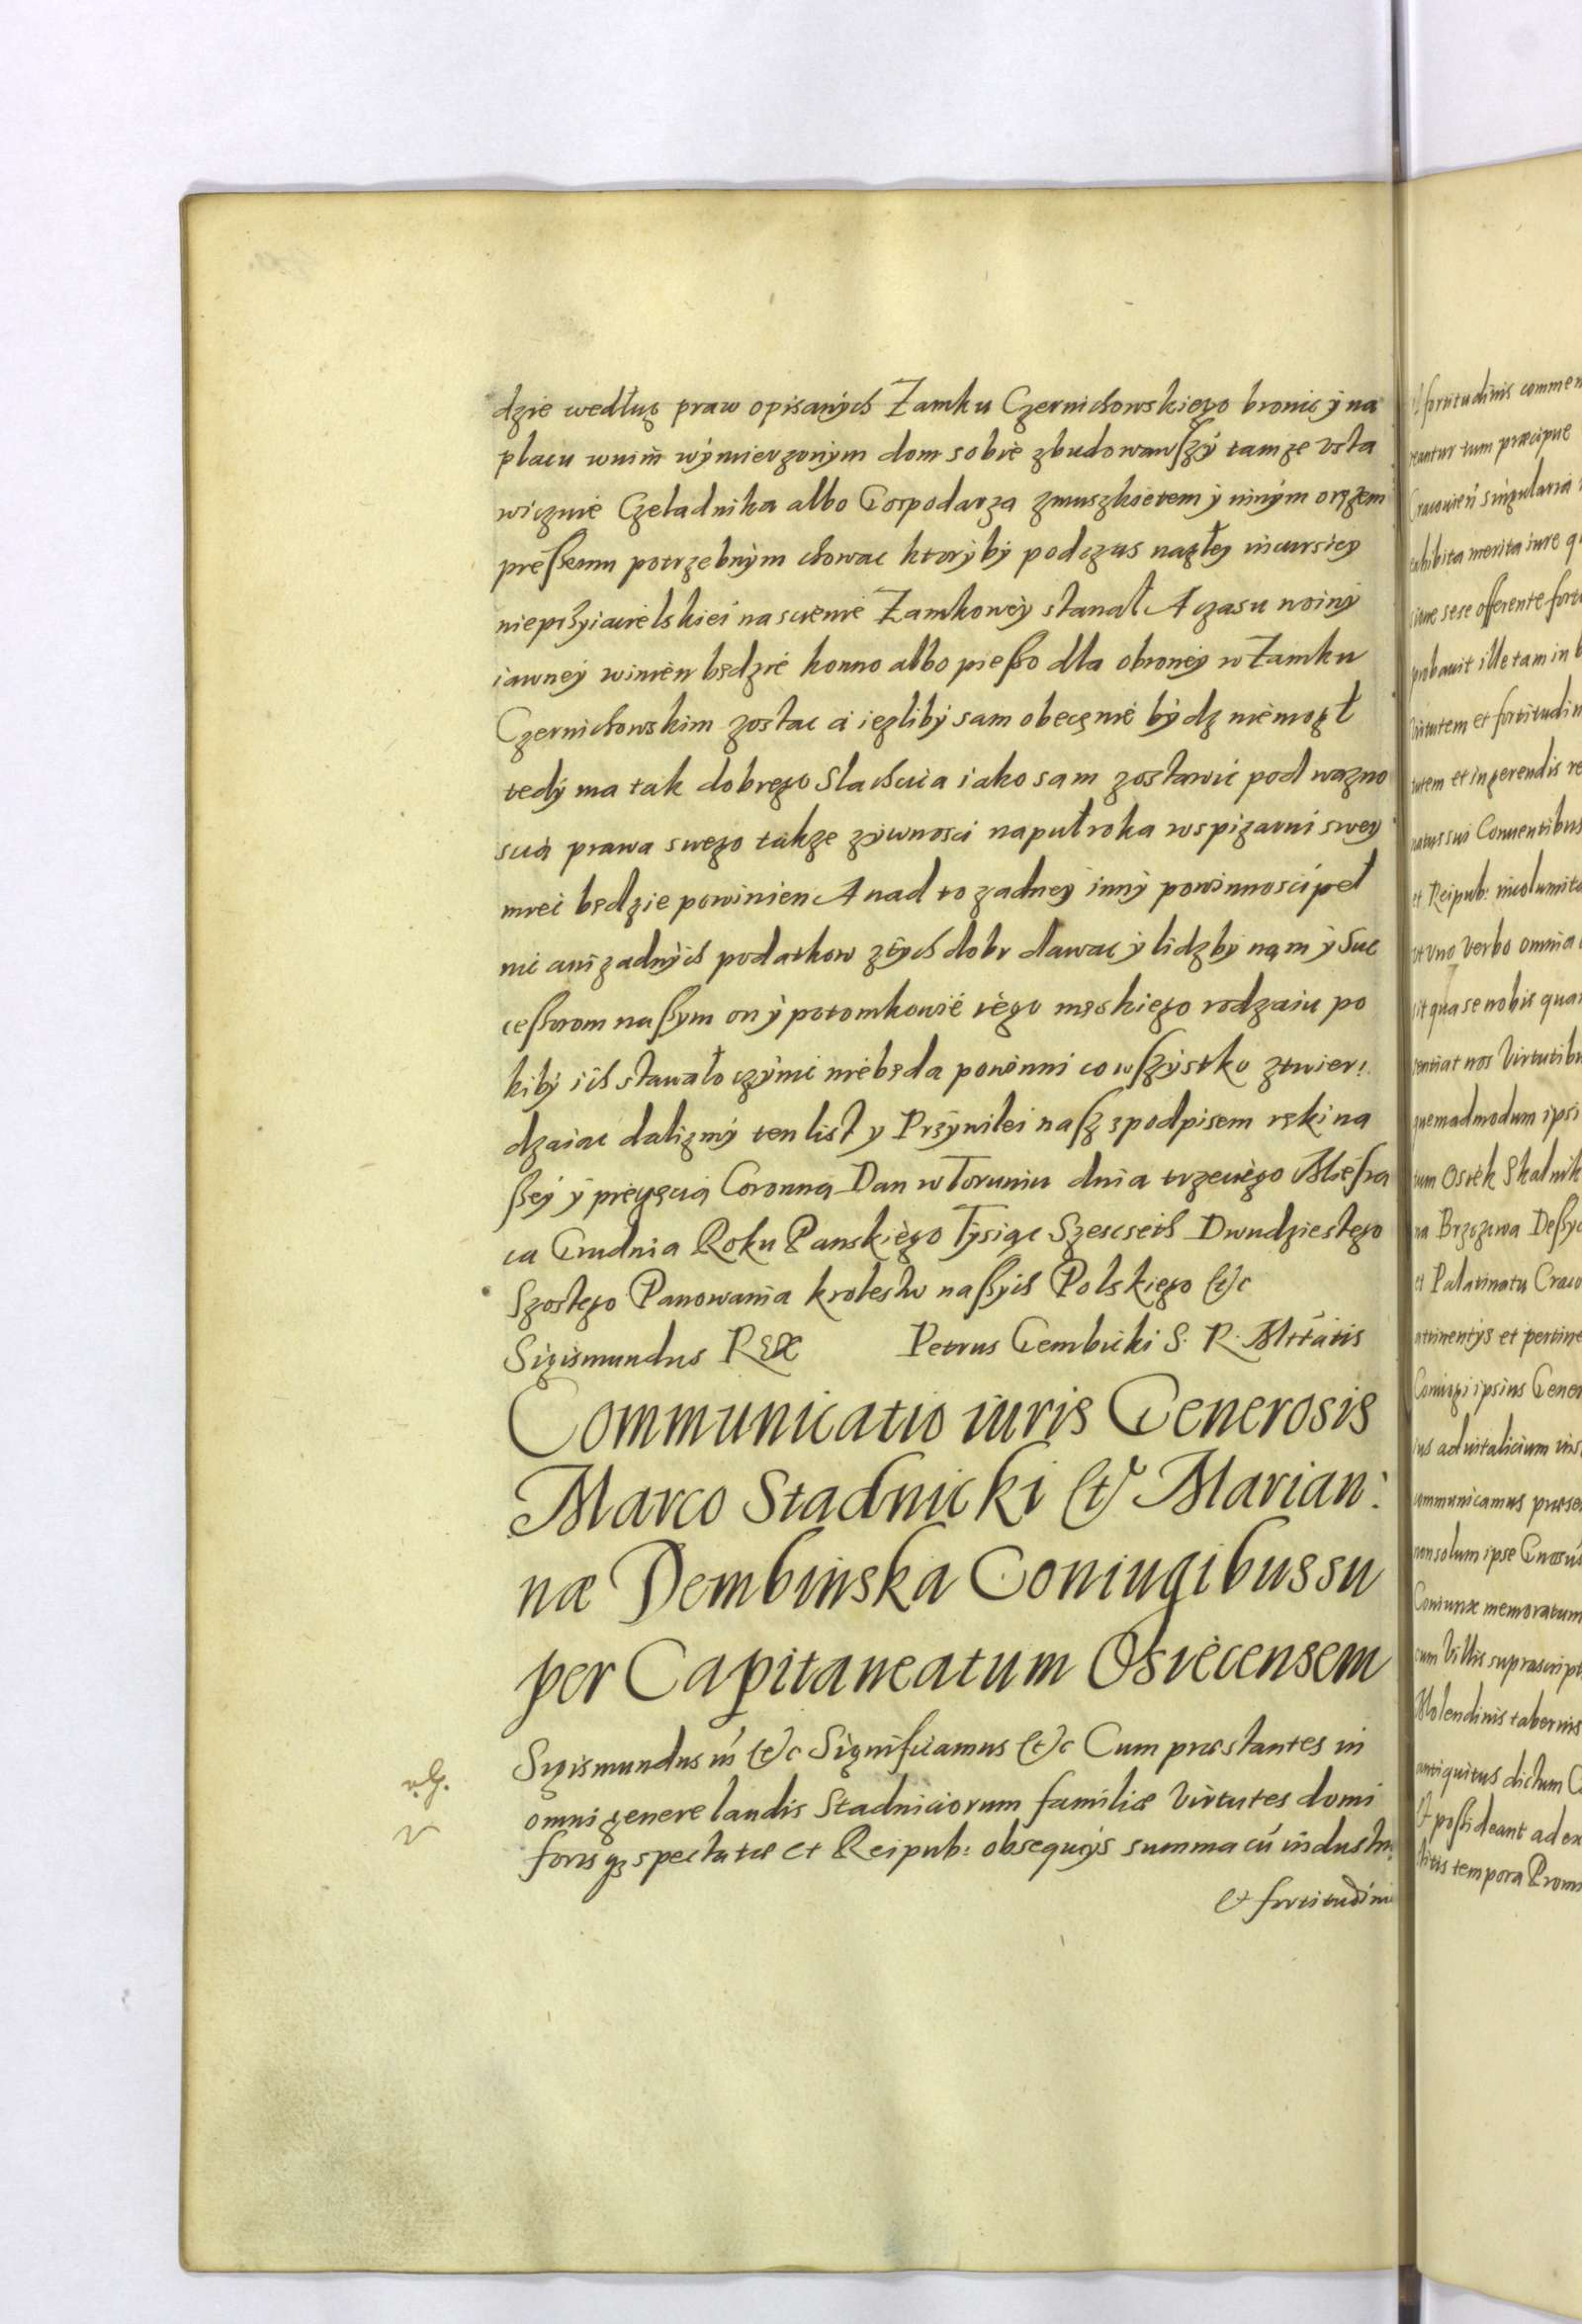 dzie według praw opisanych Zamku Czernichowskiego bronic ÿ na
placu wnim̃ wÿmierzonÿm dom sobie zbudowawszÿ tamze vsta
wicznie Czeladnika albo Gospodarza zmuszkietem ÿ ninÿm oręzem
preßemu potrzebnÿm chowac ktorÿbÿ podczas nagłeÿ incursieÿ
nieprzyiacielskiei na scienie Zamkoweÿ stanał A czasu woinÿ
iawneÿ winien będzie konno albo pießo dla obroneÿ w Zamku
Czernichowskim zostac a iezlibÿ sam obecznie bÿdz niemogł
tedÿ ma tak dobrego Slachcica iako sam zostawic pod wazno
scią prawa swego takze zÿwnosci na puł roka wspizarni sweÿ
miec będzie powinien A nad to zadneÿ innÿ powinnosci peł
nic ani zadnÿch podatkow ztÿch dobr dawac ÿ lidzbÿ nąm ÿ Suc
ceßorom naßym on ÿ potomkowie iego męskiego rodzaiu po
kibÿ ich stawało czÿnic niebęda powinni co wszÿstko ztwier:
dzaiac dalizmÿ ten list y Przÿwilei nasz zpodpisem ręki na
ßeÿ ÿ pieczęcią Coronną Dan w Toruniu dnia trzeciego Miesią
ca Grudnia Roku Panskiego Tÿsiąc Szescseth Dwudziestego
Szostego Panowania krolestw naßych Polskiego etc
Sigismundus REX Petrus Gembicki S. R. Mttatis
Communicatio iuris Generosis
Marco Stadnicki et Marian:
næ Dembinska Coniugibus su
per Capitaneatum Osiecensem
Sigismundus iii etc Significamus etc Cum præstantes in
omni genere laudis Stadniciorum familiæ Virtutes domi
forisqꝫ spectatæ et Reipub: obsequÿs summa cū industri
et fortitudini
l fortitudinis commen
eantur tum præcipue
Cracovień singularia
exhibita merita iure q
ione sese offerente forti
probauit ille tam in b
Virtutem et fortitudin
tutem et in gerendis re
natus sui Conuentibus
et Reipub: incolumita
vt vno verbo omnia
it qua se nobis quam
sentiat nos Virtutibu
quemadmodum ipsi
tum Osiek Skalnik
na Brzozowa Deßyc
et Palatinatu Craco
attinentÿs et pertine
Coniugi ipsius Gener
ius aduitalicium vin
ommunicamus præse
non solum ipse Gnosus
Coniunx memoratum
cum Villis suprascript
Molendinis tabernis
antiquitus dictum C
et poßideant ad ex
litis tempora Prom